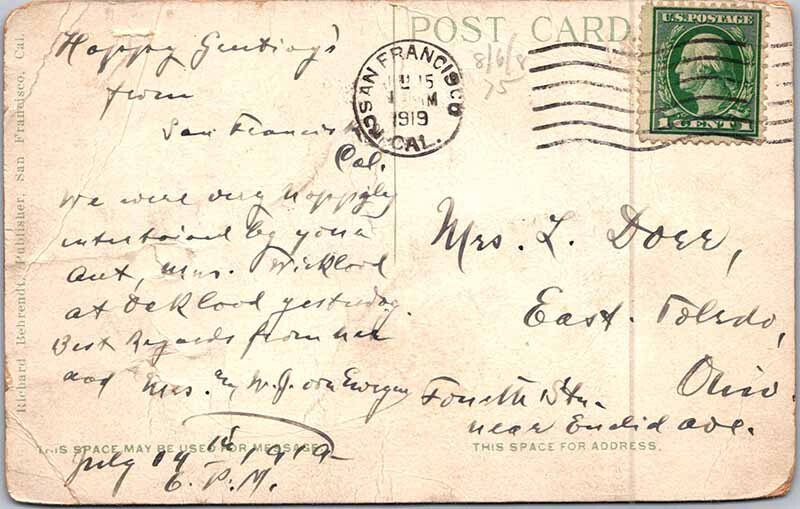 POST CARD
Happy Greetings
from
San Francisco
Cal.
We were very happyly
intertained by your
Ant, Mrs. Wicklood
at Oaklood yesterday.
Best Regards from her
and Mrs. W. J. von Ewegen
July 14 1919
6. P.M.
THIS SPACE MAY BE USED FOR MESSAGE
Richard Behrendt, Publisher, San Francisco, Cal.
SAN FRANCISCO
15
1919
CAL.
8/6/8
15
U.S. POSTAGE
1 CENT 1
Mrs. L. Doer,
East. Toledo,
Ohio.
Fourth Stn.
near Euclid ave.
THIS SPACE FOR ADDRESS.